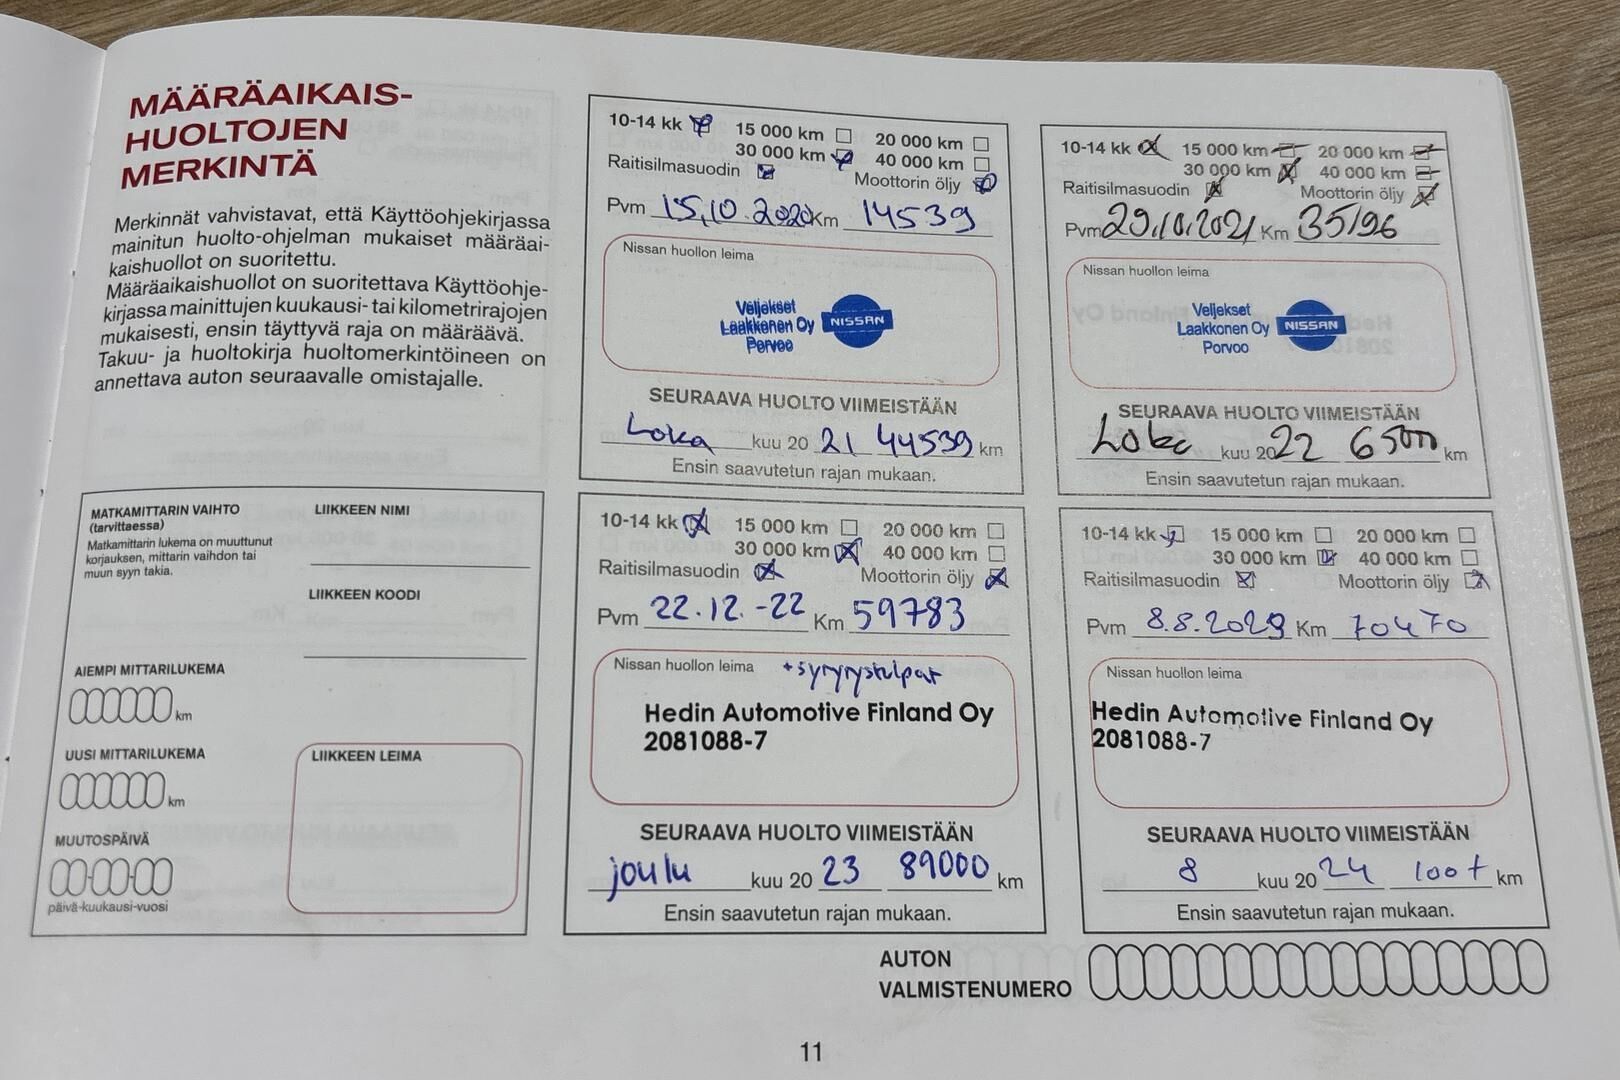 MÄÄRÄAIKAIS-
HUOLTOJEN
MERKINTÄ
Merkinnät vahvistavat, että Käyttöohjekirjassa
mainitun huolto-ohjelman mukaiset määräai-
kaishuollot on suoritettu.
Määräaikaishuollot on suoritettava Käyttöohje-
kirjassa mainittujen kuukausi- tai kilometrirajojen
mukaisesti, ensin täyttyvä raja on määräävä.
Takuu- ja huoltokirja huoltomerkintöineen on
annettava auton seuraavalle omistajalle.
MATKAMITTARIN VAIHTO
(tarvittaessa)
Matkamittarin lukema on muuttunut
korjauksen, mittarin vaihdon tai
muun syyn takia.
LIIKKEEN NIMI
LIIKKEEN KOODI
AIEMPI MITTARILUKEMA
km
UUSI MITTARILUKEMA
km
MUUTOSPÄIVÄ
päivä-kuukausi-vuosi
LIIKKEEN LEIMA
10-14 kk 15 000 km 20 000 km
30 000 km 40 000 km
Raitisilmasuodin Moottorin öljy
Pvm 15.10.2020 Km 14539
Nissan huollon leima
Veljekset
Laakkonen Oy
Porvoo
NISSAN
SEURAAVA HUOLTO VIIMEISTÄÄN
Loka kuu 20 21 44539 km
Ensin saavutetun rajan mukaan.
10-14 kk 15 000 km 20 000 km
30 000 km 40 000 km
Raitisilmasuodin Moottorin öljy
Pvm 29.10.2021 Km 35196
Nissan huollon leima
Veljekset
Laakkonen Oy
Porvoo
NISSAN
SEURAAVA HUOLTO VIIMEISTÄÄN
Loka kuu 20 22 65000 km
Ensin saavutetun rajan mukaan.
10-14 kk 15 000 km 20 000 km
30 000 km 40 000 km
Raitisilmasuodin Moottorin öljy
Pvm 22.12.-22 Km 59783
Nissan huollon leima +sytytystulpat
Hedin Automotive Finland Oy
2081088-7
SEURAAVA HUOLTO VIIMEISTÄÄN
joulu kuu 20 23 89000 km
Ensin saavutetun rajan mukaan.
10-14 kk 15 000 km 20 000 km
30 000 km 40 000 km
Raitisilmasuodin Moottorin öljy
Pvm 8.8.2023 Km 70470
Nissan huollon leima
Hedin Automotive Finland Oy
2081088-7
SEURAAVA HUOLTO VIIMEISTÄÄN
8 kuu 20 24 100t km
Ensin saavutetun rajan mukaan.
AUTON
VALMISTENUMERO
11